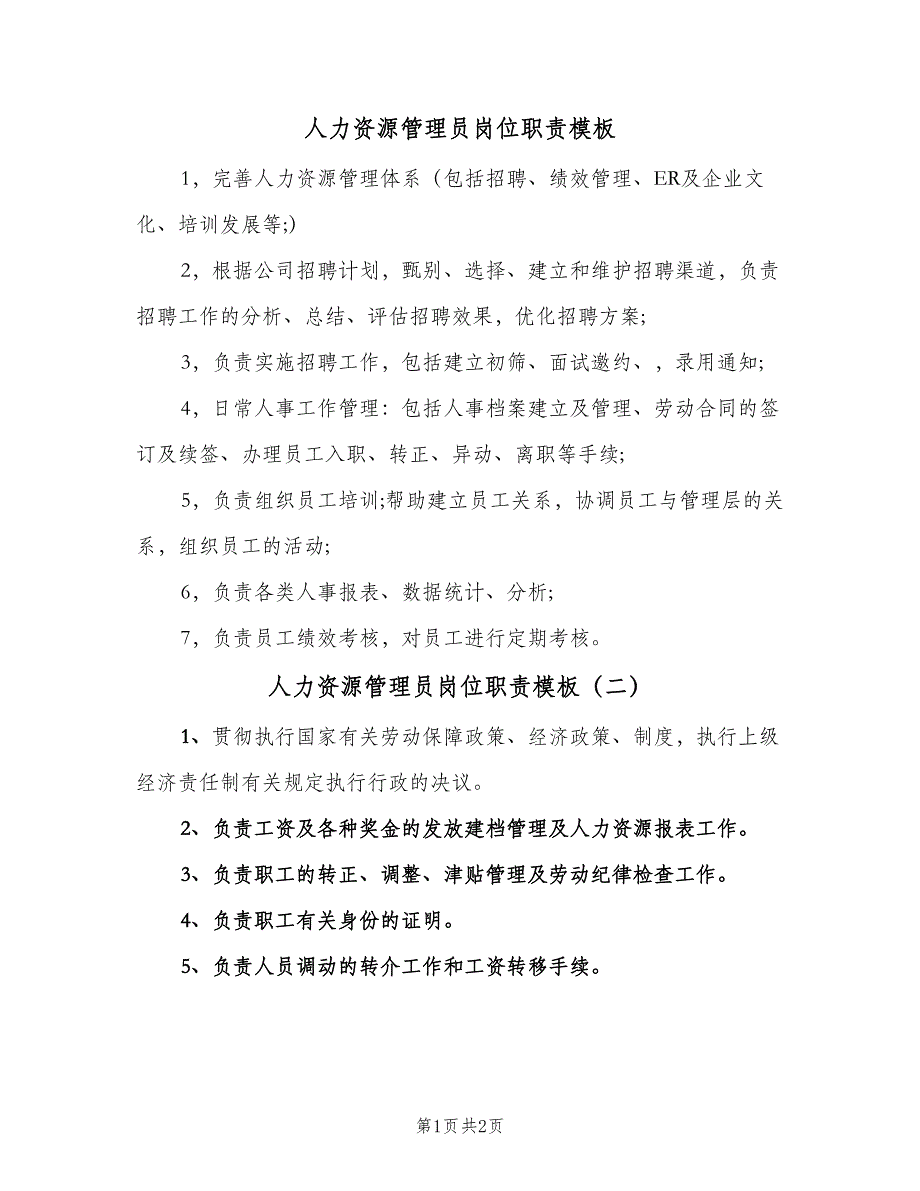 人力资源管理员岗位职责模板
1，完善人力资源管理体系（包括招聘、绩效管理、ER及企业文
化、培训发展等;）
2，根据公司招聘计划，甄别、选择、建立和维护招聘渠道，负责
招聘工作的分析、总结、评估招聘效果，优化招聘方案;
3，负责实施招聘工作，包括建立初筛、面试邀约、，录用通知;
4，日常人事工作管理：包括人事档案建立及管理、劳动合同的签
订及续签、办理员工入职、转正、异动、离职等手续;
5，负责组织员工培训;帮助建立员工关系，协调员工与管理层的关
系，组织员工的活动;
6，负责各类人事报表、数据统计、分析;
7，负责员工绩效考核，对员工进行定期考核。
人力资源管理员岗位职责模板（二）
1、贯彻执行国家有关劳动保障政策、经济政策、制度，执行上级
经济责任制有关规定执行行政的决议。
2、负责工资及各种奖金的发放建档管理及人力资源报表工作。
3、负责职工的转正、调整、津贴管理及劳动纪律检查工作。
4、负责职工有关身份的证明。
5、负责人员调动的转介工作和工资转移手续。
第1页共2页